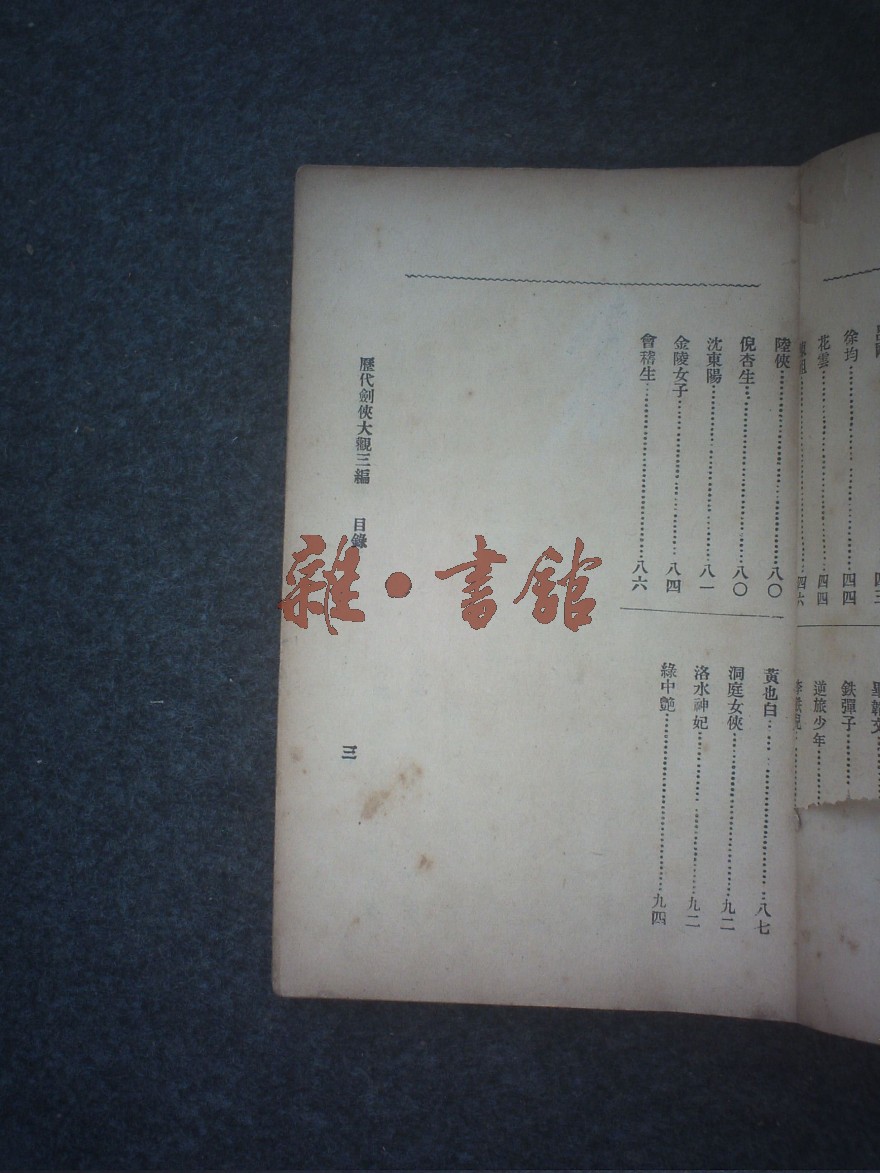 徐均……四四
花雲……四四
鉄彈子……
逆旅少年……
陸俠……八〇
倪杏生……八〇
沈東陽……八一
金陵女子……八四
會稽生……八六
黃也白……八七
洞庭女俠……九二
洛水神妃……九二
綠中艶……九四
歷代劍俠大觀三編 目錄 三
雜•書館